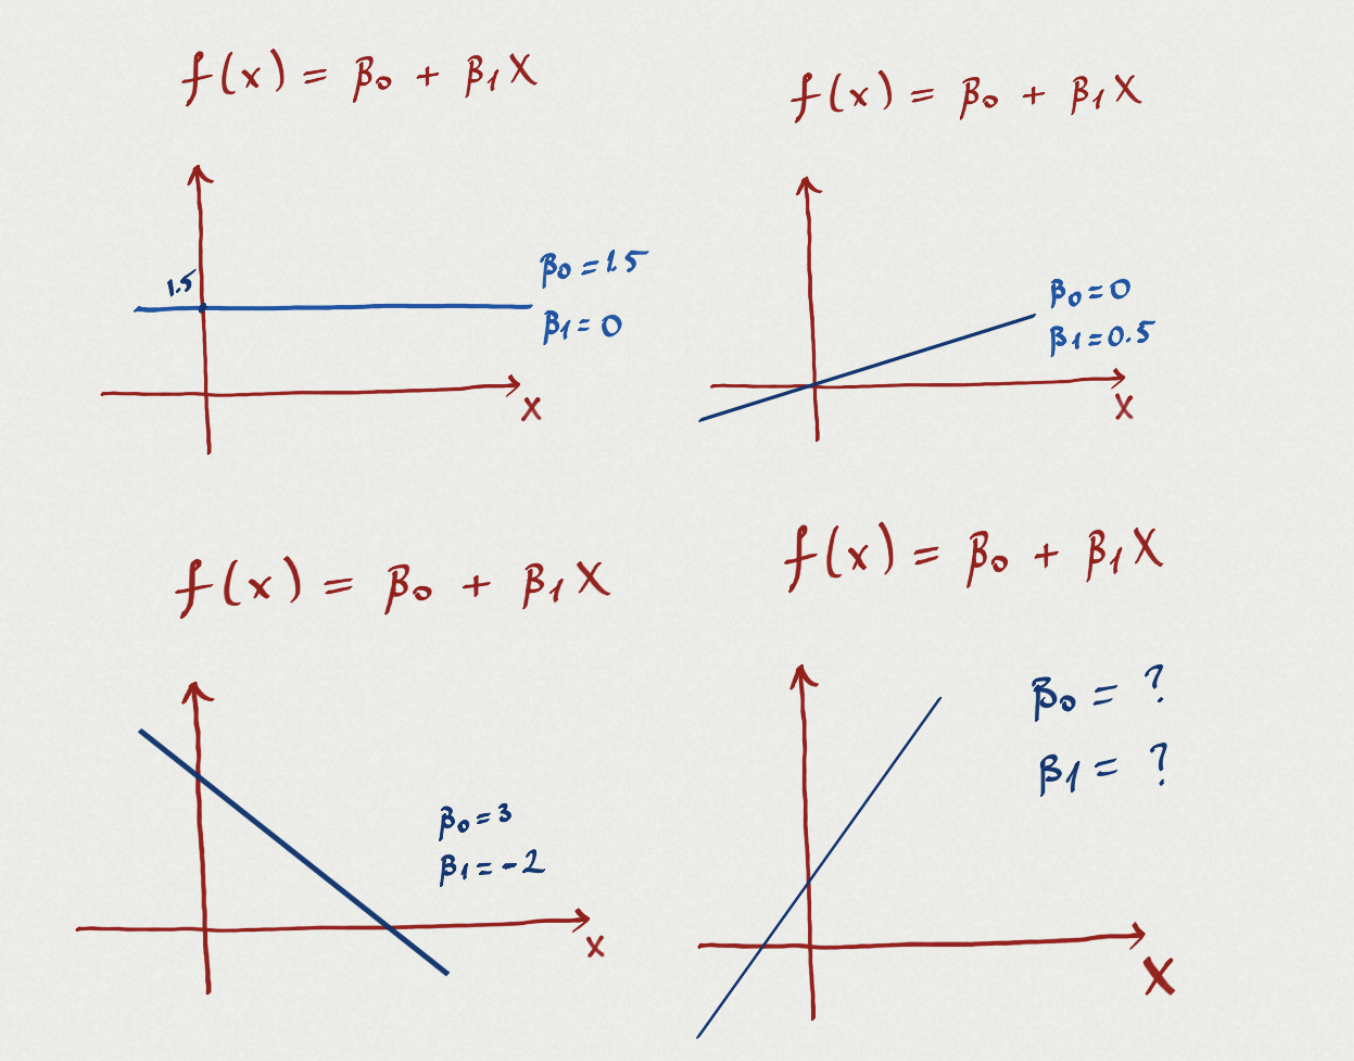 f(x) = β₀ + β₁X
1.5
β₀ = 1.5
β₁ = 0
X
f(x) = β₀ + β₁X
β₀ = 0
β₁ = 0.5
X
f(x) = β₀ + β₁X
β₀ = 3
β₁ = -2
X
f(x) = β₀ + β₁X
β₀ = ?
β₁ = ?
X